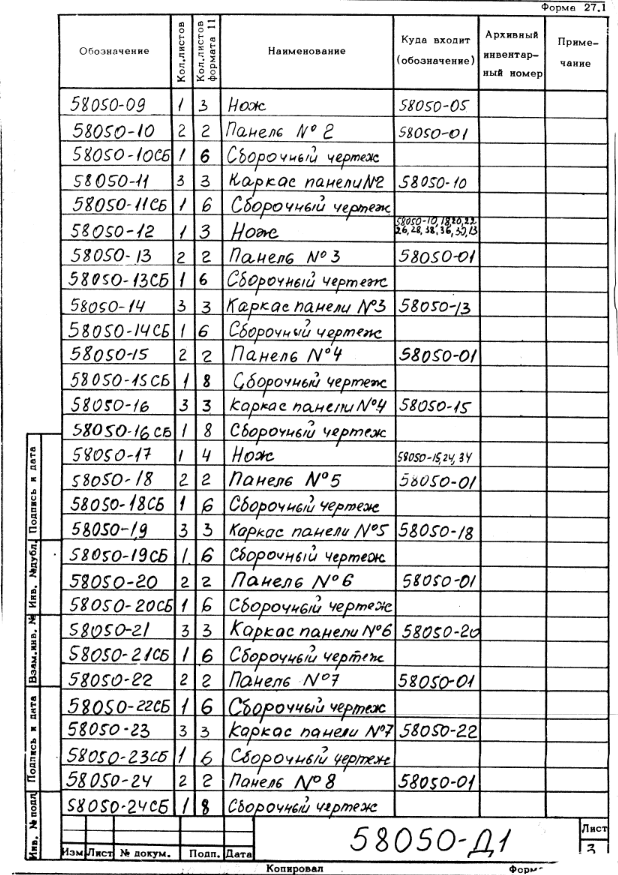 Форма 27.1
Обозначение Кол.листов Кол.листов формата 11 Наименование Куда входит (обозначение) Архивный инвентар-ный номер Приме-чание
58050-09 1 3 Нож 58050-05
58050-10 2 2 Панель №2 58050-01
58050-10СБ 1 6 Сборочный чертеж
58050-11 3 3 Каркас панели №2 58050-10
58050-11СБ 1 6 Сборочный чертеж
58050-12 1 3 Нож 58050-10,
58050-13 2 2 Панель №3 58050-01
58050-13СБ 1 6 Сборочный чертеж
58050-14 3 3 Каркас панели №3 58050-13
58050-14СБ 1 6 Сборочный чертеж
58050-15 2 2 Панель №4 58050-01
58050-15СБ 1 8 Сборочный чертеж
58050-16 3 3 Каркас панели №4 58050-15
58050-16СБ 1 8 Сборочный чертеж
58050-17 1 4 Нож 58050-15,24,34
58050-18 2 2 Панель №5 58050-01
58050-18СБ 1 6 Сборочный чертеж
58050-19 3 3 Каркас панели №5 58050-18
58050-19СБ 1 6 Сборочный чертеж
58050-20 2 2 Панель №6 58050-01
58050-20СБ 1 6 Сборочный чертеж
58050-21 3 3 Каркас панели №6 58050-20
58050-21СБ 1 6 Сборочный чертеж
58050-22 2 2 Панель №7 58050-01
58050-22СБ 1 6 Сборочный чертеж
58050-23 3 3 Каркас панели №7 58050-22
58050-23СБ 1 6 Сборочный чертеж
58050-24 2 2 Панель №8 58050-01
58050-24СБ 1 8 Сборочный чертеж
Подпись и дата
Инв. №дубл.
Взам.инв. №
Подпись и дата
Инв. № подл
Изм Лист № докум. Подп. Дата
58050-Д1
Лист
3
Копировал